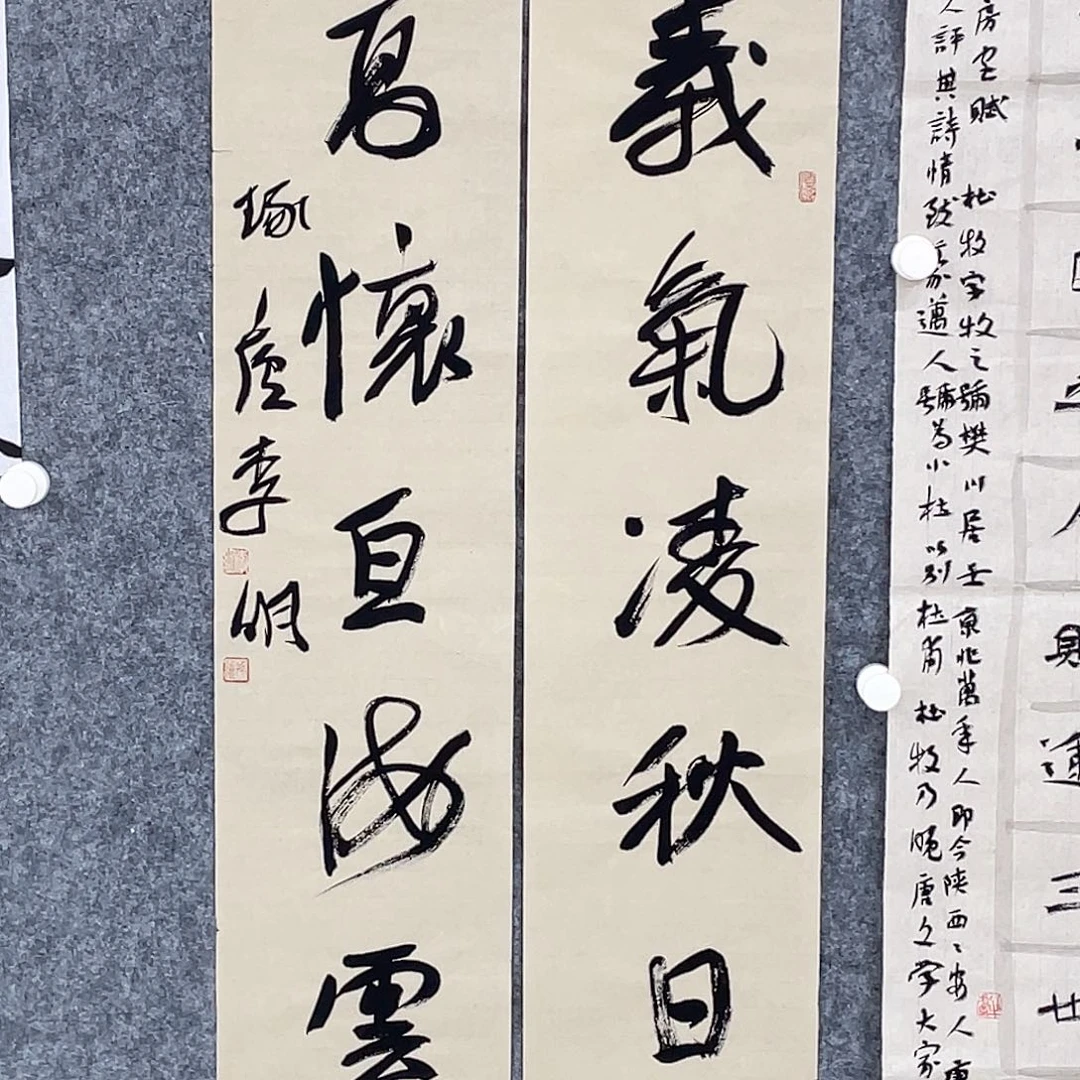 房宮賦 杜牧字牧之號樊川居士 京兆萬年人即今陝西〻安人唐
人評其詩情致豪邁人號為小杜以別杜甫 杜牧乃晚唐文學大家
義氣凌秋日
高懷亘海雲
琢 李明